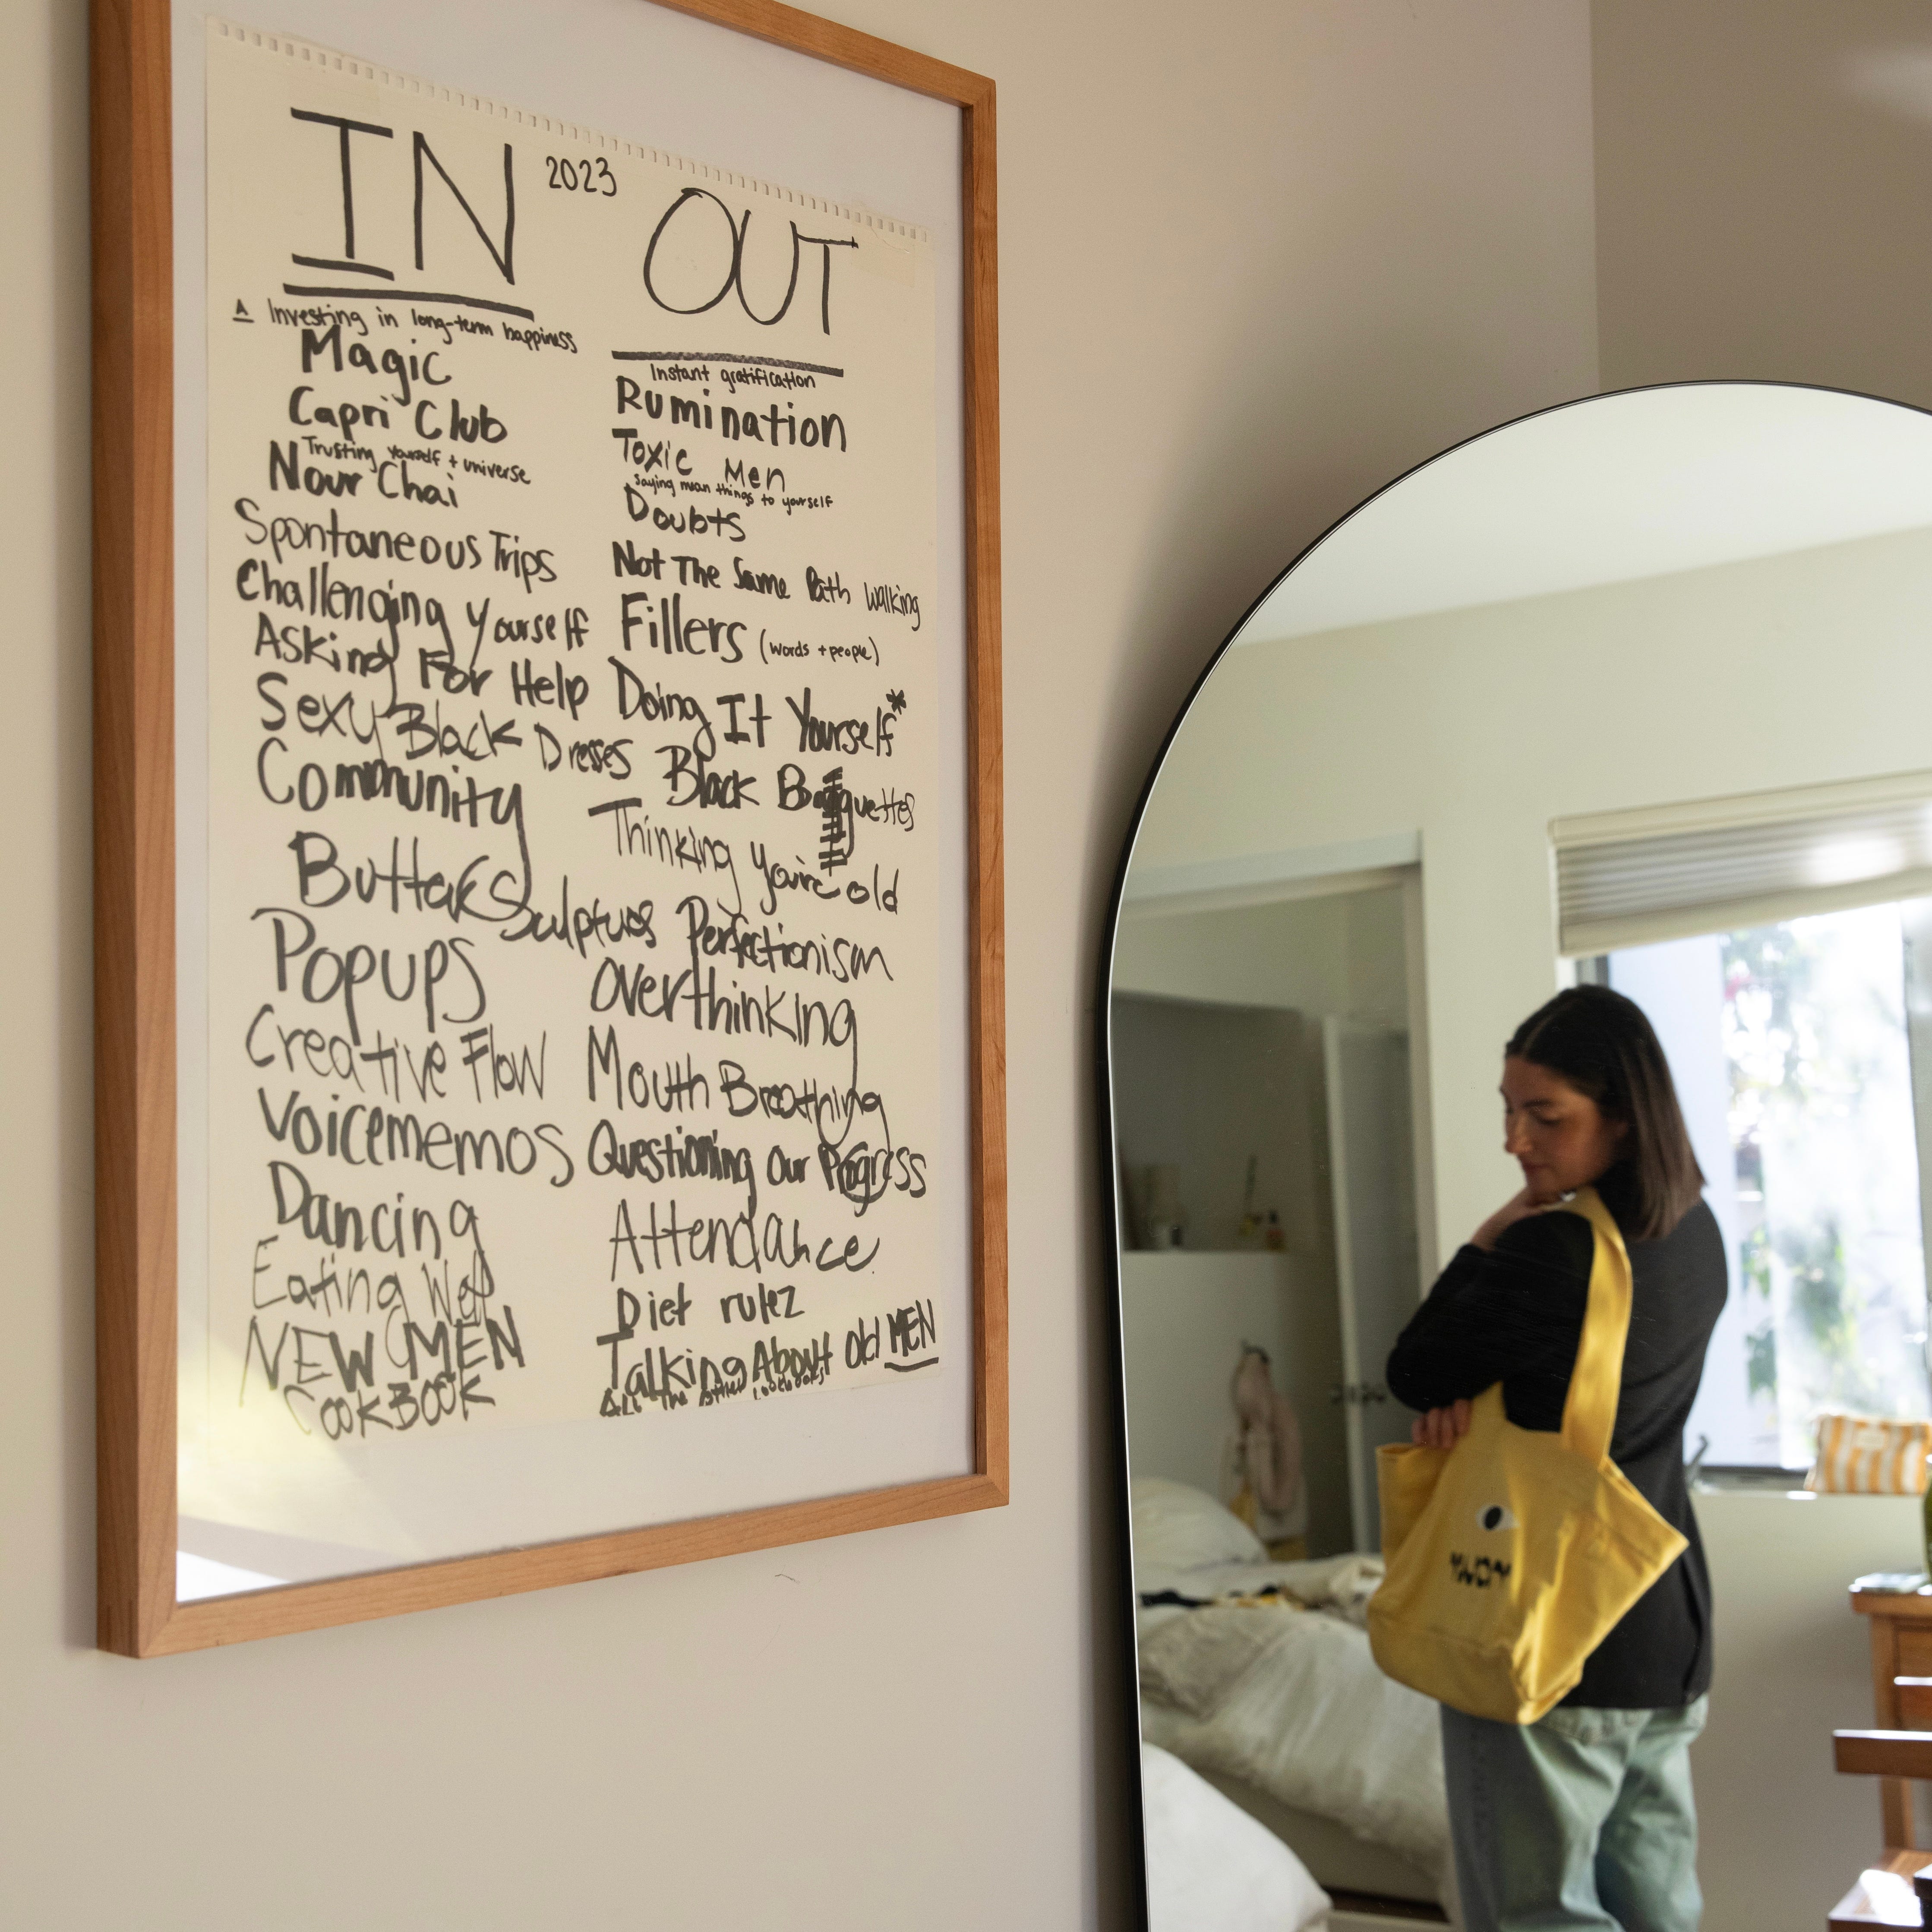 IN
2023
OUT
Investing in long-term happiness
Magic
Capri Club
Trusting yourself + universe
Nour Chai
Spontaneous Trips
Challenging Yourself
Asking For Help
Sexy Black Dresses
Community
Butter Sculptures
Popups
Creative Flow
Voicememos
Dancing
Eating Well
NEW MEN
COOKBOOK
Instant gratification
Rumination
Toxic Men
Saying mean things to yourself
Doubts
Not The Same Path Walking
Fillers (words + people)
Doing It Yourself*
Black Baguettes
Thinking you're old
Perfectionism
Overthinking
Mouth Breathing
Questioning Our Progress
Attendance
Diet rulez
Talking About old MEN
All The other cookbooks